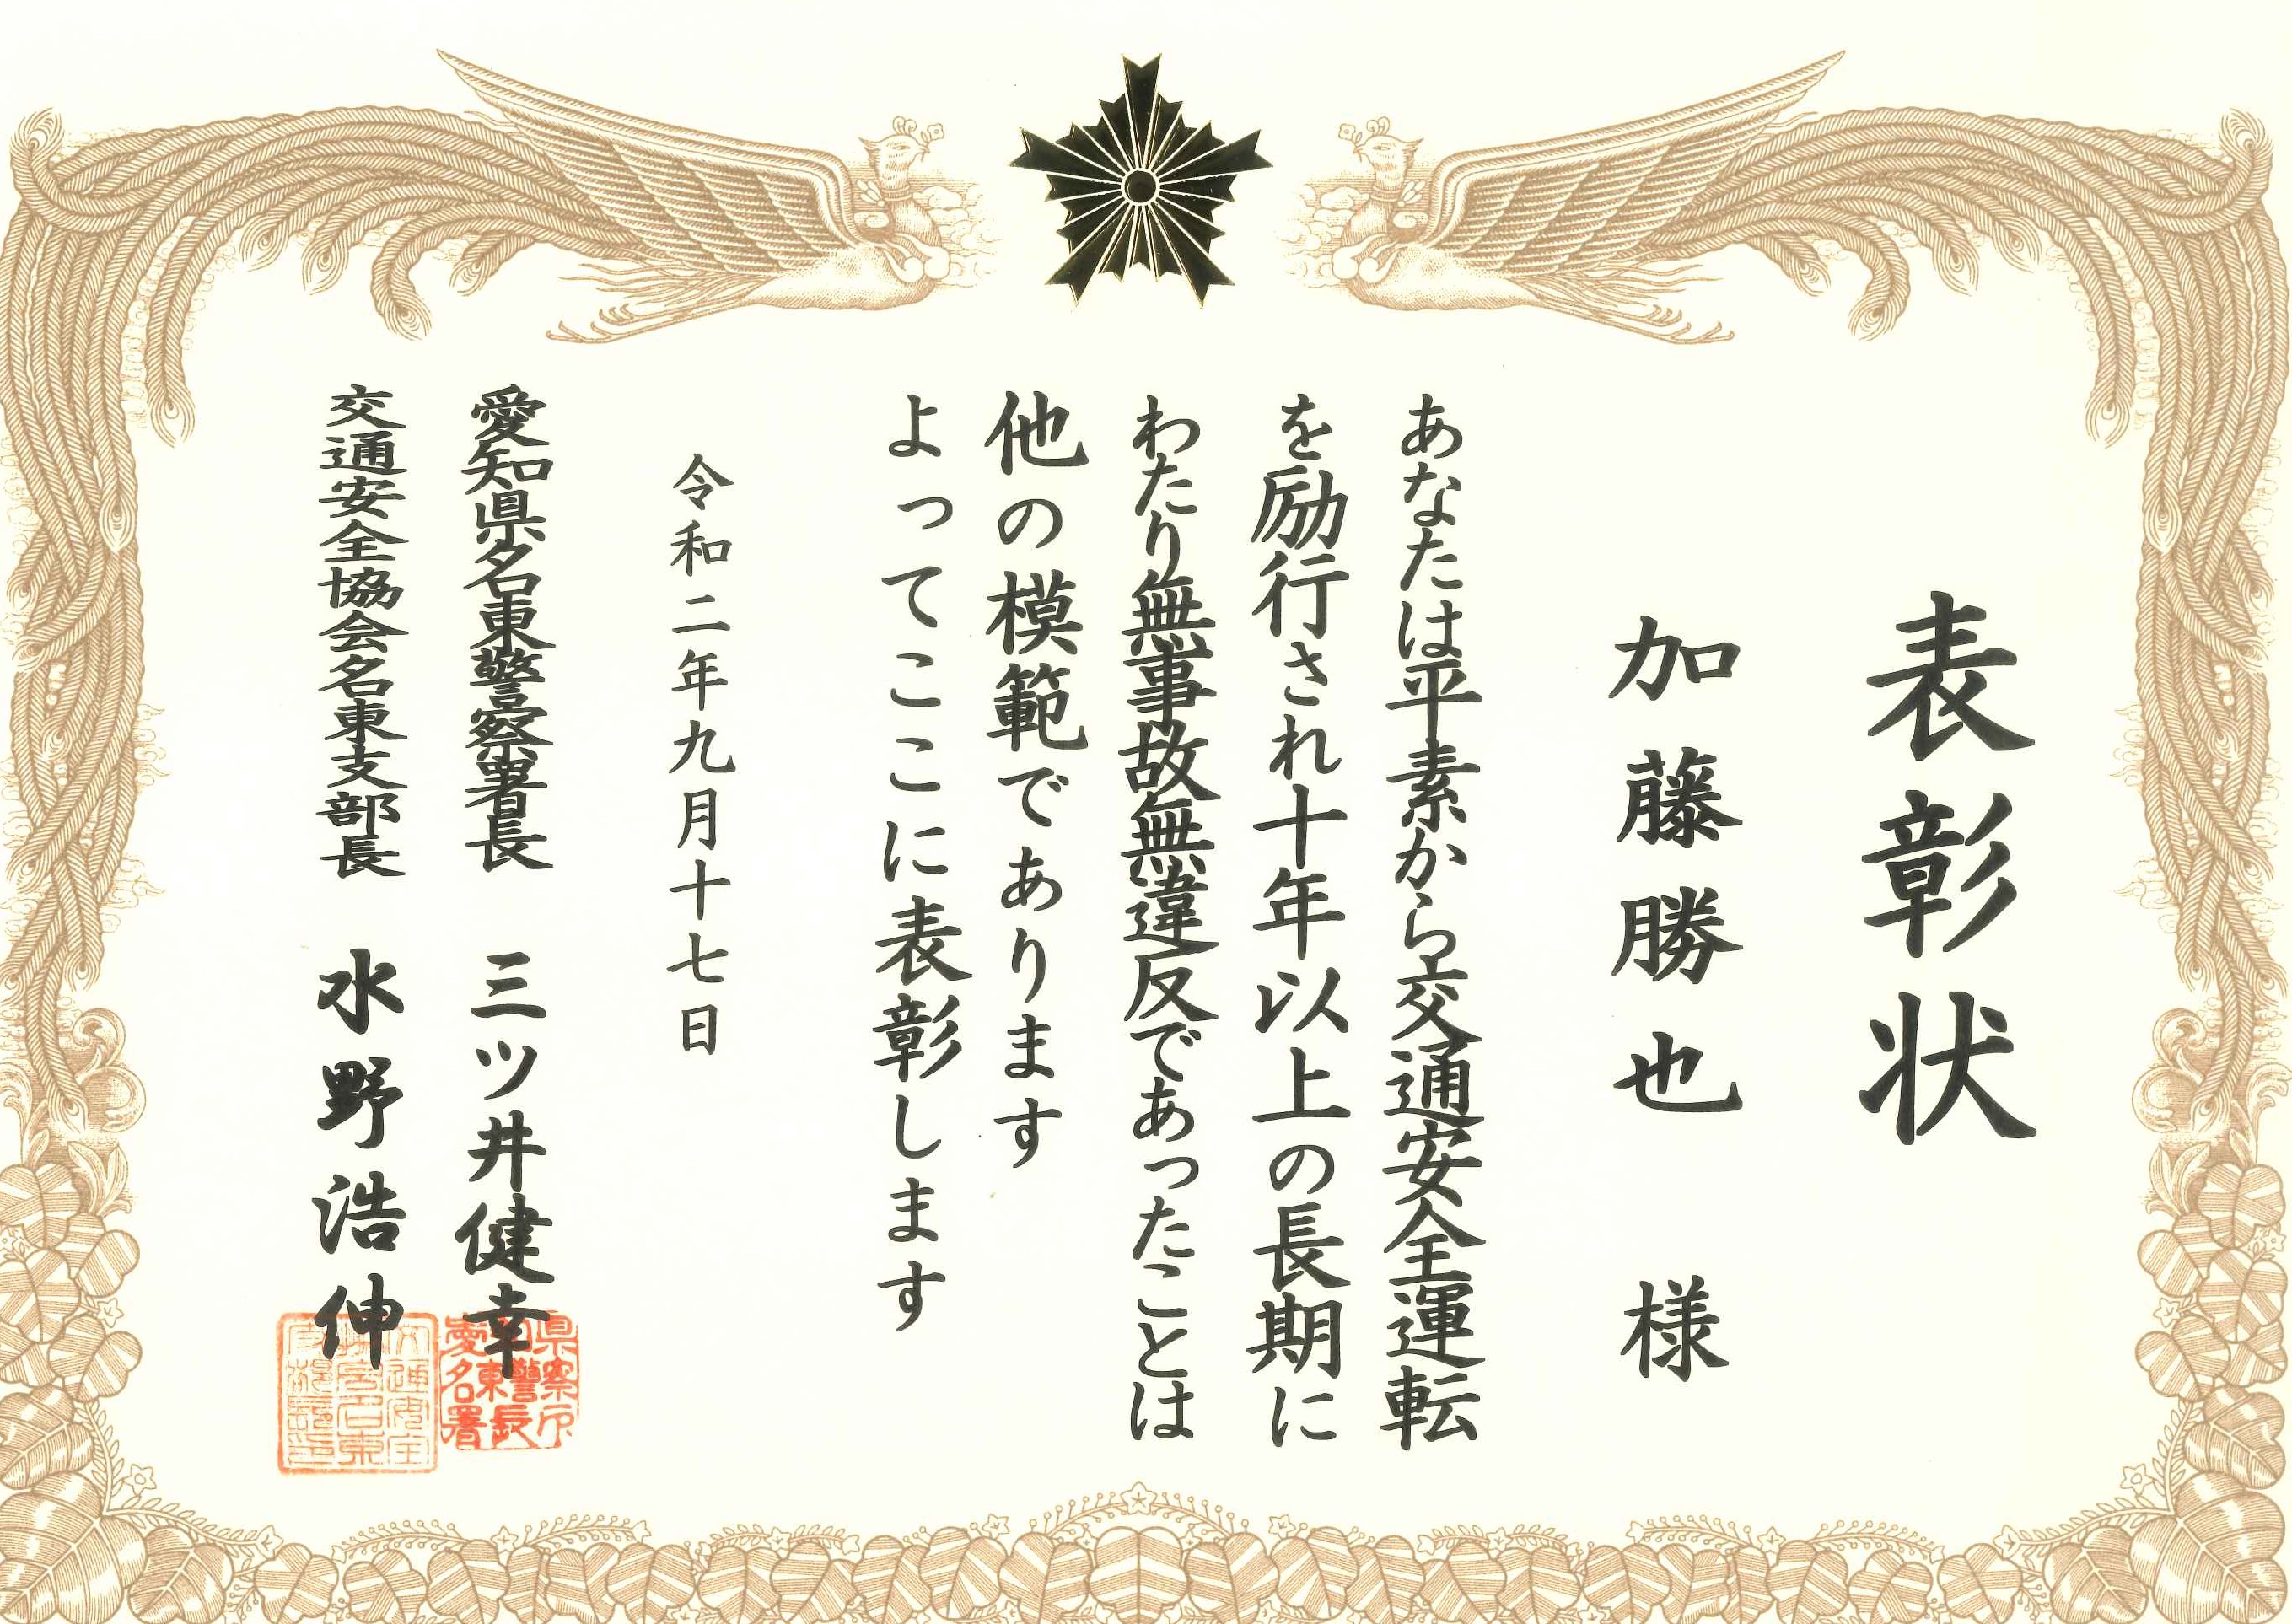 表彰状
加藤勝也 様
あなたは平素から交通安全運転
を励行され十年以上の長期に
わたり無事故無違反であったことは
他の模範であります
よってここに表彰します
令和二年九月十七日
愛知県名東警察署長 三ツ井健幸
交通安全協会名東支部長 水野浩伸